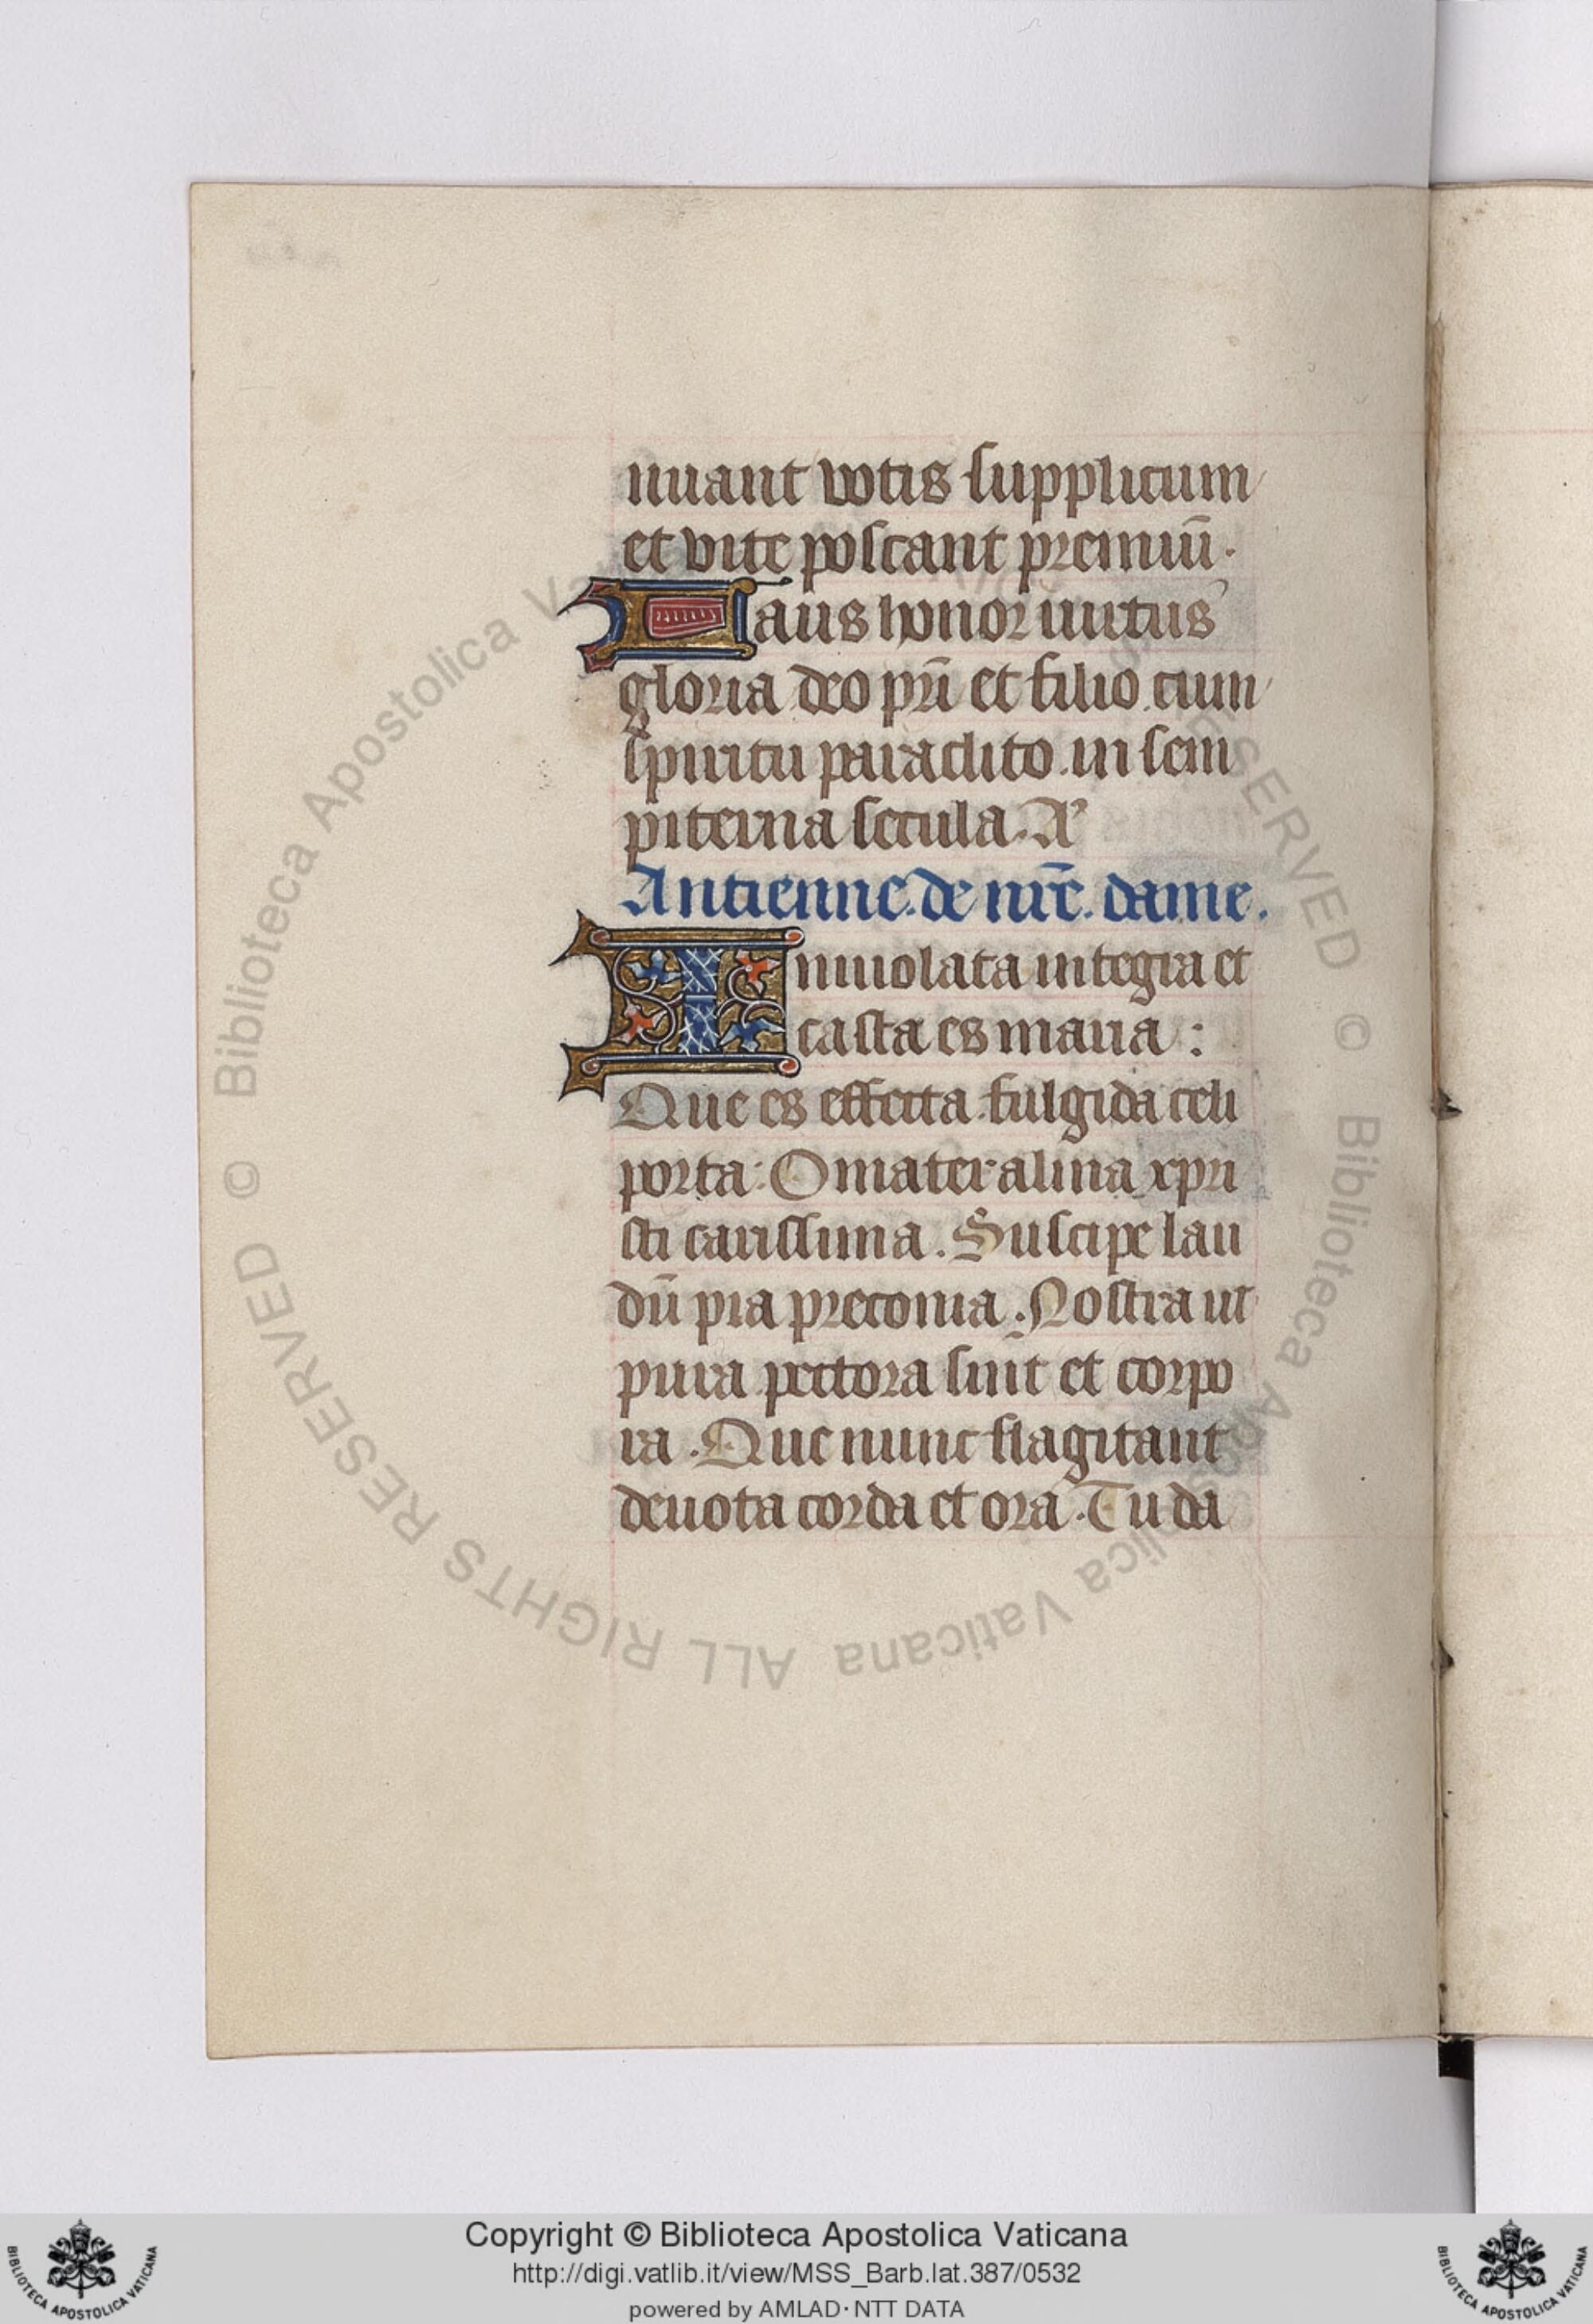 nuant votis supplicum
et vite poscant premiū.
Laus honor uirtus
gloria deo pri̅ et filio cum
spiritu paraclito in sem
piterna secula. A
Antienne. de nr̅e. dame.
Inuiolata integra et
casta es maria :
Que es effecta fulgida celi
porta: O mater alma xpri
sti carissima. Suscipe lau
dū pia preconia. Nostra ut
pura pectora sint et corpo
ra. Que nunc flagitant
deuota corda et ora. Tu da
© Biblioteca Apostolica Vaticana ALL RIGHTS RESERVED © Biblioteca Apostolica Vaticana ALL RIGHTS RESERVED
Copyright © Biblioteca Apostolica Vaticana
http://digi.vatlib.it/view/MSS_Barb.lat.387/0532
powered by AMLAD·NTT DATA
BIBLIOTECA APOSTOLICA VATICANA
BIBLIOTECA APOSTOLICA VATICANA